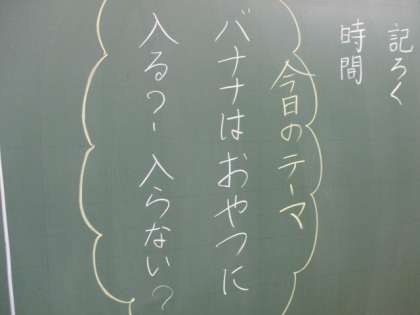 記ろく
時間
今日のテーマ
バナナはおやつに
入る?-入らない?